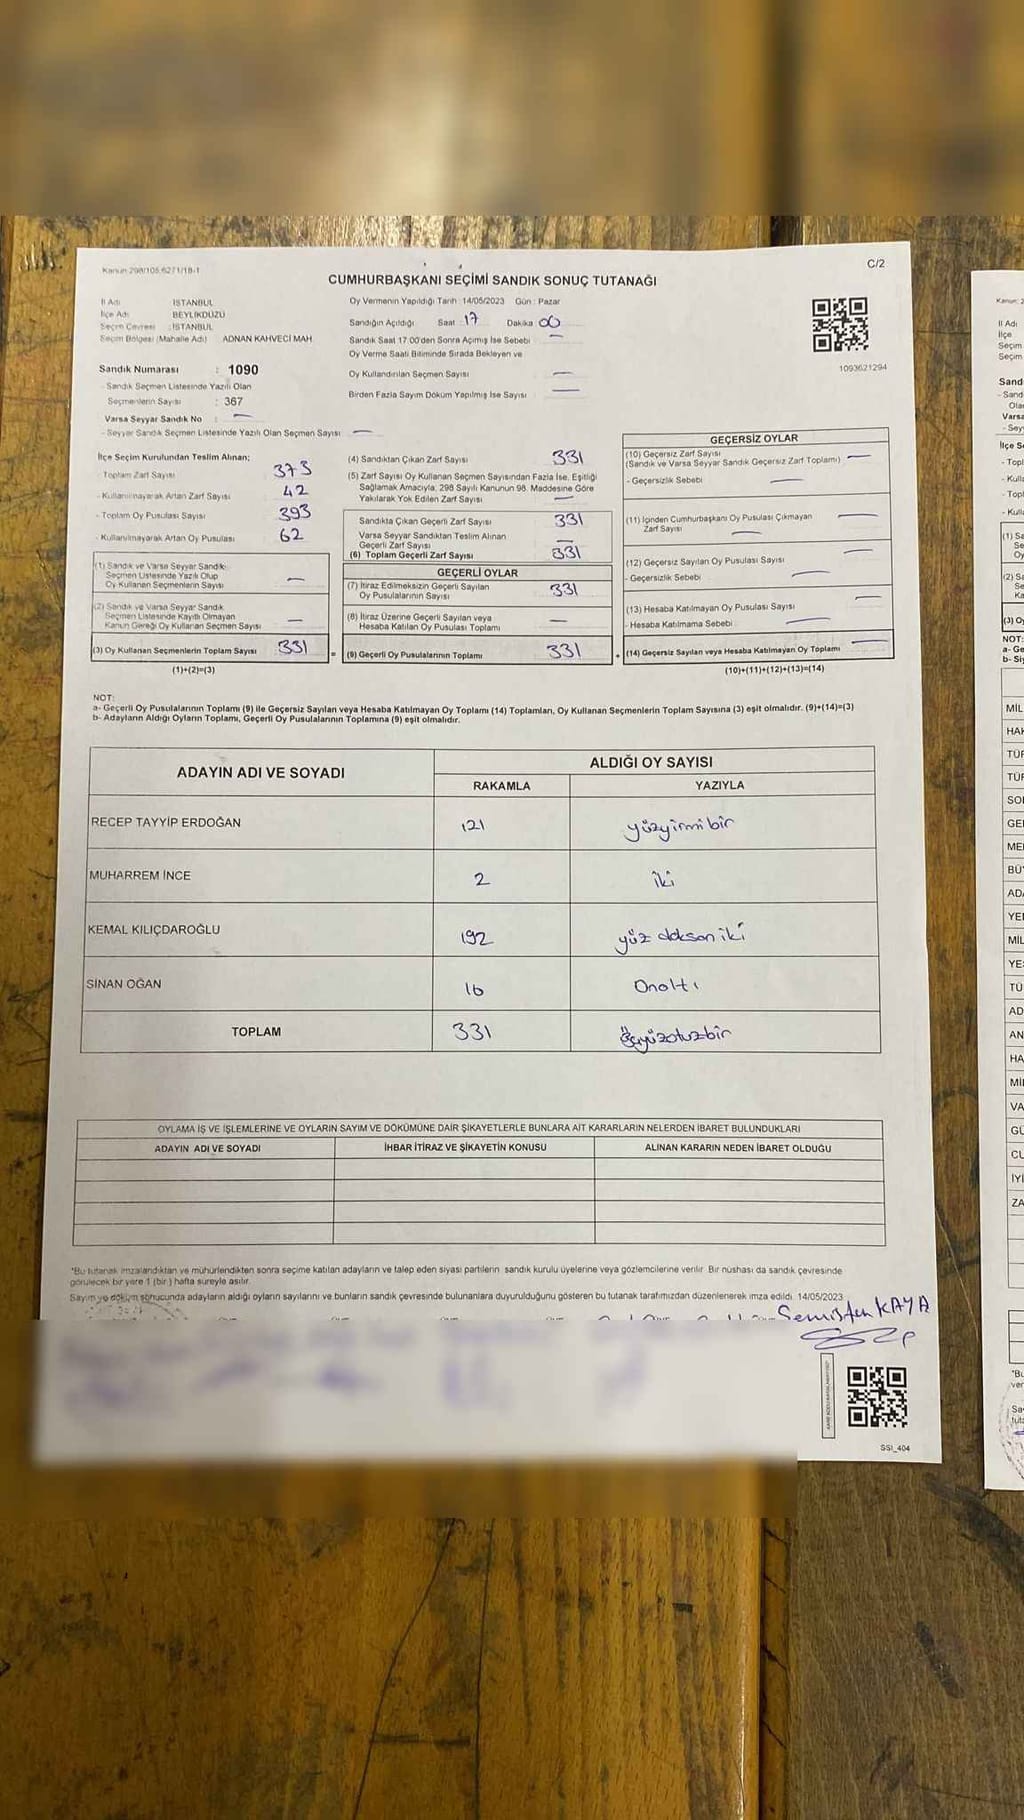 Kanun 298/105,627/1/18-1
C/2
CUMHURBAŞKANI SEÇİMİ SANDIK SONUÇ TUTANAĞI
İl Adı İSTANBUL
İlçe Adı BEYLİKDÜZÜ
Seçim Çevresi : İSTANBUL
Seçim Bölgesi (Mahalle Adı) ADNAN KAHVECİ MAH
Sandık Numarası : 1090
- Sandık Seçmen Listesinde Yazılı Olan
Seçmenlerin Sayısı : 367
Varsa Seyyar Sandık No : —
- Seyyar Sandık Seçmen Listesinde Yazılı Olan Seçmen Sayısı —
Oy Vermenin Yapıldığı Tarih : 14/05/2023 Gün : Pazar
Sandığın Açıldığı Saat : 17 Dakika : 00
Sandık Saat 17.00'den Sonra Açılmış İse Sebebi —
Oy Verme Saati Bitiminde Sırada Bekleyen ve
Oy Kullandırılan Seçmen Sayısı —
Birden Fazla Sayım Döküm Yapılmış İse Sayısı —
1093621294
İlçe Seçim Kurulundan Teslim Alınan;
- Toplam Zarf Sayısı 373
- Kullanılmayarak Artan Zarf Sayısı 42
- Toplam Oy Pusulası Sayısı 393
- Kullanılmayarak Artan Oy Pusulası 62
(1) Sandık ve Varsa Seyyar Sandık
Seçmen Listesinde Yazılı Olup
Oy Kullanan Seçmenlerin Sayısı —
(2) Sandık ve Varsa Seyyar Sandık
Seçmen Listesinde Kayıtlı Olmayan
Kanun Gereği Oy Kullanan Seçmen Sayısı —
(3) Oy Kullanan Seçmenlerin Toplam Sayısı 331
(1)+(2)=(3)
(4) Sandıktan Çıkan Zarf Sayısı 331
(5) Zarf Sayısı Oy Kullanan Seçmen Sayısından Fazla İse, Eşitliği
Sağlamak Amacıyla, 298 Sayılı Kanunun 98. Maddesine Göre
Yakılarak Yok Edilen Zarf Sayısı —
Sandıkta Çıkan Geçerli Zarf Sayısı 331
Varsa Seyyar Sandıktan Teslim Alınan
Geçerli Zarf Sayısı —
(6) Toplam Geçerli Zarf Sayısı 331
GEÇERLİ OYLAR
(7) İtiraz Edilmeksizin Geçerli Sayılan
Oy Pusulalarının Sayısı 331
(8) İtiraz Üzerine Geçerli Sayılan veya
Hesaba Katılan Oy Pusulası Toplamı —
(9) Geçerli Oy Pusulalarının Toplamı 331
GEÇERSİZ OYLAR
(10) Geçersiz Zarf Sayısı
(Sandık ve Varsa Seyyar Sandık Geçersiz Zarf Toplamı) —
- Geçersizlik Sebebi —
(11) İçinden Cumhurbaşkanı Oy Pusulası Çıkmayan —
Zarf Sayısı —
(12) Geçersiz Sayılan Oy Pusulası Sayısı —
- Geçersizlik Sebebi —
(13) Hesaba Katılmayan Oy Pusulası Sayısı —
- Hesaba Katılmama Sebebi —
(14) Geçersiz Sayılan veya Hesaba Katılmayan Oy Toplamı —
(10)+(11)+(12)+(13)=(14)
NOT:
a- Geçerli Oy Pusulalarının Toplamı (9) ile Geçersiz Sayılan veya Hesaba Katılmayan Oy Toplamı (14) Toplamları, Oy Kullanan Seçmenlerin Toplam Sayısına (3) eşit olmalıdır. (9)+(14)=(3)
b- Adayların Aldığı Oyların Toplamı, Geçerli Oy Pusulalarının Toplamına (9) eşit olmalıdır.
ADAYIN ADI VE SOYADI ALDIĞI OY SAYISI
RAKAMLA YAZIYLA
RECEP TAYYİP ERDOĞAN 121 yüzyirmi bir
MUHARREM İNCE 2 iki
KEMAL KILIÇDAROĞLU 192 yüz doksan iki
SİNAN OĞAN 16 Onaltı
TOPLAM 331 üçyüzotuzbir
OYLAMA İŞ VE İŞLEMLERİNE VE OYLARIN SAYIM VE DÖKÜMÜNE DAİR ŞİKAYETLERLE BUNLARA AİT KARARLARIN NELERDEN İBARET BULUNDUKLARI
ADAYIN ADI VE SOYADI İHBAR İTİRAZ VE ŞİKAYETİN KONUSU ALINAN KARARIN NEDEN İBARET OLDUĞU
*Bu tutanak imzalandıktan ve mühürlendikten sonra seçime katılan adayların ve talep eden siyasi partilerin sandık kurulu üyelerine veya gözlemcilerine verilir. Bir nüshası da sandık çevresinde
görülecek bir yere 1 (bir) hafta süreyle asılır.
Sayım ve döküm sonucunda adayların aldığı oyların sayılarını ve bunların sandık çevresinde bulunanlara duyurulduğunu gösteren bu tutanak tarafımızdan düzenlenerek imza edildi. 14/05/2023
KAYA
SSİ_404